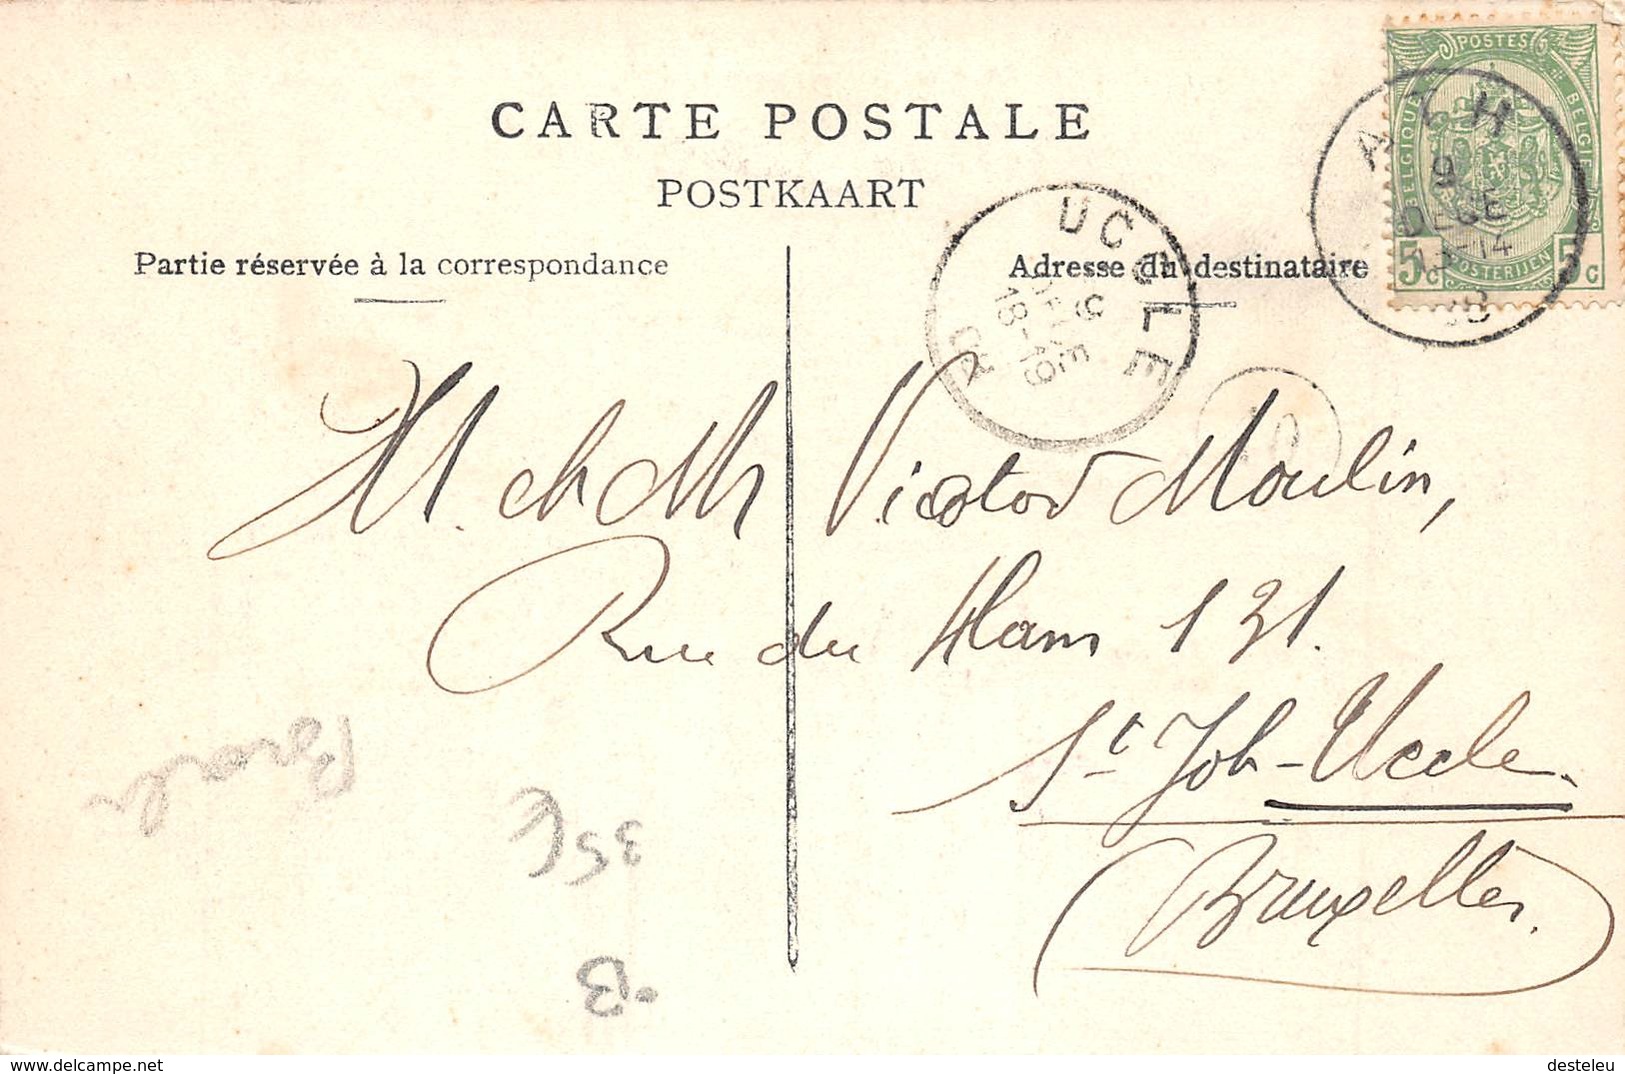 CARTE POSTALE
POSTKAART
Partie réservée à la correspondance
Adresse du destinataire
POSTES
BELGIQUE
BELGIË
5c POSTERIJEN 5c
ATH
9
DECE
13-14
08
UCCLE
9
DECE
18-19
M. et Me Victor Moulin,
Rue du Ham 131.
St Job-Uccle.
(Bruxelles.)
35
B
www.delcampe.net
desteleu